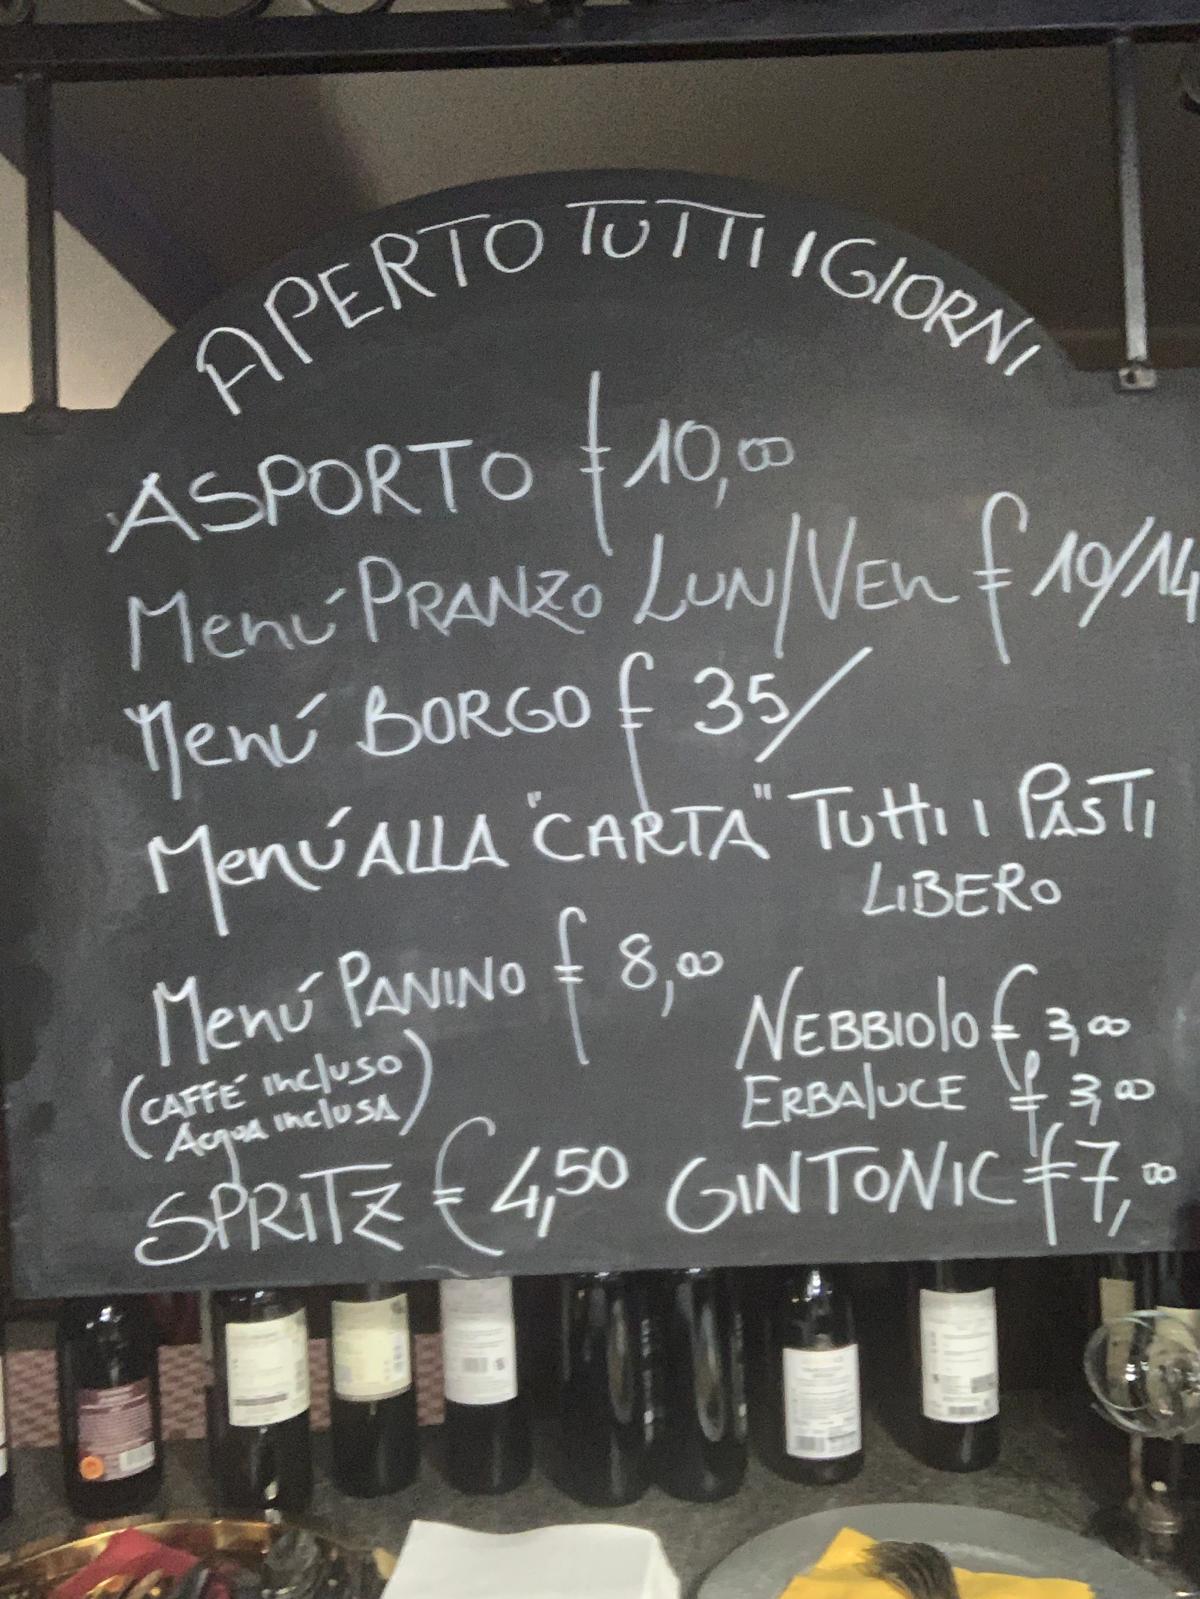 APERTO TUTTI I GIORNI
ASPORTO € 10,00
Menú PRANZO LUN/VEN € 10/14
Menú BORGO € 35/
Menú ALLA "CARTA" TUTTI I PASTI
LIBERO
Menú PANINO € 8,00
(CAFFÉ INCLUSO
ACQUA INCLUSA)
NEBBIOLO € 3,00
ERBALUCE € 3,00
SPRITZ € 4,50 GINTONIC € 7,00